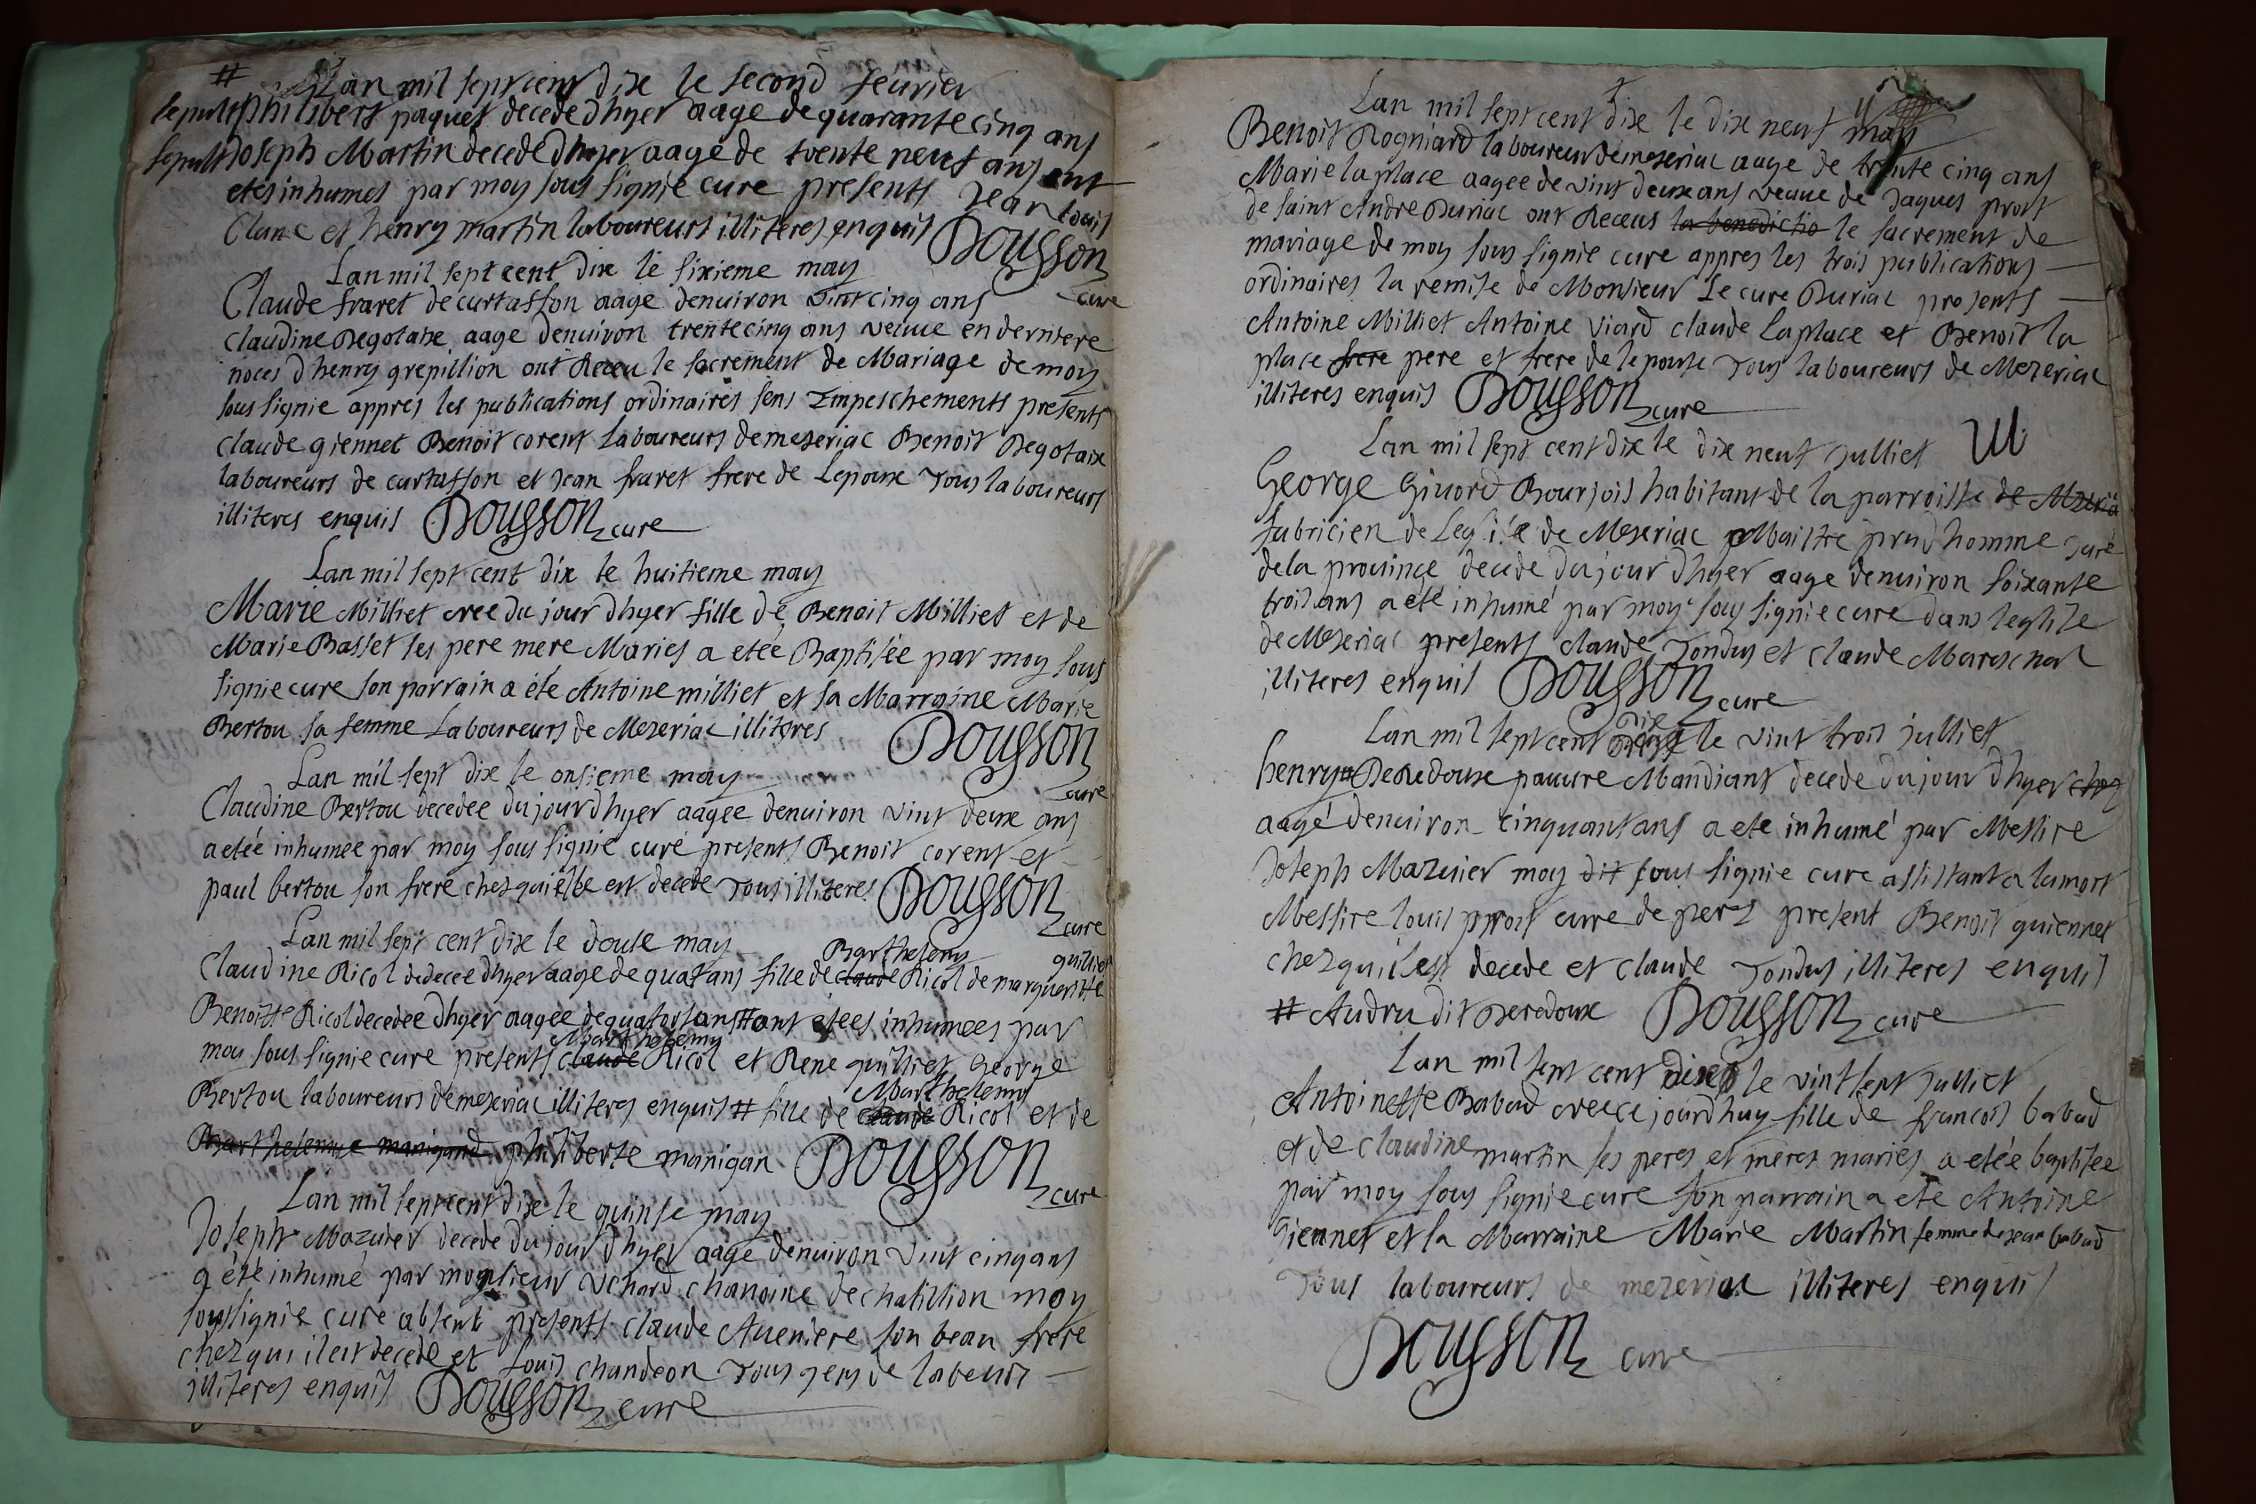 #
Lan mil sept cent dix le second feurier
sepult philibert paquet decede dhyer aage de quarante cinq ans
sepult Joseph Martin decede dhyer aagé de trente neuf ans ont
etés inhumes par moy sous signie cure presents Jean Louis
Clanc et henry martin laboureurs illiteres enquis Dousson
cure
Lan mil sept cent dix le sixieme may
Claude fraret de curtasson aage denuiron vint cinq ans
claudine Degotaix aage denuiron trente cinq ans veuue en derniere
noces dhenry grepillion ont Receu le sacrement de Mariage de moy
sous signie appres les publications ordinaires sens Impeschements presents
claude giennet Benoit corent laboureurs de meseriac Benoit Degotaix
laboureurs de curtasson et Jean fraret frere de Lepoux Tous laboureurs
illiteres enquis Dousson cure
Lan mil sept cent dix le huitieme may
Marie Milliet cree du jour dhyer fille de Benoit Milliet et de
Marie Basset ses pere mere Maries a etée Baptisée par moy sous
signie cure son parrain a été Antoine milliet et sa Marraine Marie
Bertou sa femme Laboureurs de Meseriac illiteres Dousson
cure
Lan mil sept dix le onsieme may
Claudine Bertou decedée du jour dhyer aagee denuiron vint deux ans
a etée inhumée par moy sous signié curé presents Benoit corent et
paul bertou son frere chez qui elle est decede Tous illiteres Dousson
cure
Lan mil sept cent dix le douse may
Barthelemy quilliet
Claudine Ricol dedecee dhyer aage de quat ans fille de claude Ricol de marguerite
Benoitte Ricol decedée dhyer aagée de quatort ans # ont etées inhumees par
Marthelemy
moy sous signie cure presents claude Ricol et Rene quilliet George
Marthelemy
Bertou laboureurs de meseriac illiteres enquis # fille de claude Ricol et de
Barthelemye manigand philiberte manigan Dousson
cure
Lan mil sept cent dix le quinse may
Joseph Mazuier decede du jour dhyer aage denuiron vint cinq ans
a été inhumé par monsieur Vchard chanoine de chatillion moy
sousignie cure absent presents claude Aueniere son beau frere
chez qui il est decede et Louis chandeon Tous gens de labeur
illiteres enquis Dousson cure
Lan mil sept cent dix le dix neuf may
Benoit Rogniard laboureur de meseriac aage de trente cinq ans
Marie laplace aagee de vint deux ans veuue de Jaques prost
de saint Andre Duriac ont Receus la benedictio le sacrement de
mariage de moy sous signie cure appres les trois publications
ordinaires la remise de Monsieur Le cure Duriac presents
Antoine Milliet Antoine Viard claude Laplace et Benoit la
place frere pere et frere de lepouse Tous laboureurs de Mezeriac
illiteres enquis Dousson cure
Lan mil sept cent dix le dix neuf Julliet
George Giuord Bourjois habitant de la parroisse de Mezeria
fabricien de Leglise de Meseriac Maistre prudhomme Juré
de la prouince decede du jour dhyer aage denuiron soixante
trois ans a eté inhumé par moy sous signie cure dans leglise
de Meseriac presents claude Tondus et claude Mareschal
illiteres enquis Dousson cure
dix
Lan mil sept cent le vint trois julliet
henry # Deredoux pauure Mandiant decede du jour dhyer chez
aagé denuiron cinquant ans a ete inhumé par Messire
Joseph Mazuier moy dit sous signie cure assistant a lamort
Messire louis prost cure de perz present Benoit guiennet
chez qui il est decede et claude Tondus illiteres enquis
# Audru dit Deredoux Dousson cure
Lan mil sept cent dix le vint sept Julliet
Antoinette Babad creé ce jourdhuy fille de francois babad
et de claudine martin ses peres et meres mariés a etée baptisée
par moy sous signie cure son parrain a eté Antoine
Giennet et la Marraine Marie Martin femme de Jean babad
Tous laboureurs de mezeriac illiteres enquis
Dousson cure